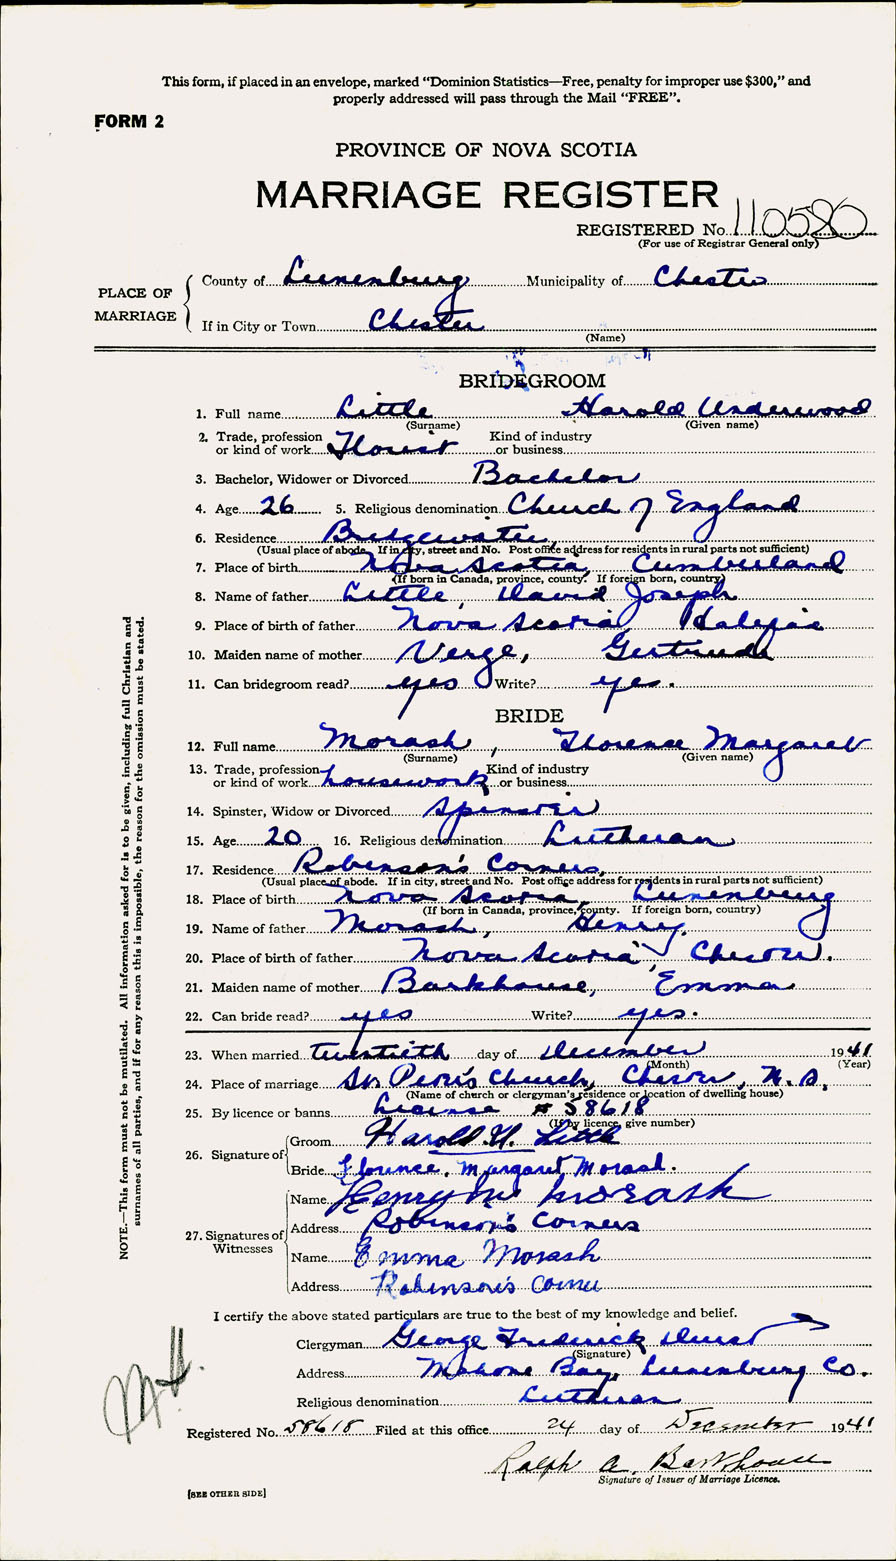 This form, if placed in an envelope, marked “Dominion Statistics—Free, penalty for improper use $300,” and
properly addressed will pass through the Mail “FREE”.
FORM 2
PROVINCE OF NOVA SCOTIA
MARRIAGE REGISTER
REGISTERED No. 110580
(For use of Registrar General only)
PLACE OF MARRIAGE
County of Lunenburg Municipality of Chester
If in City or Town Chester
(Name)
BRIDEGROOM
1. Full name Little Harold Underwood
(Surname) (Given name)
2. Trade, profession or kind of work Florist Kind of industry or business
3. Bachelor, Widower or Divorced Bachelor
4. Age 26 5. Religious denomination Church of England
6. Residence Bridgewater,
(Usual place of abode. If in city, street and No. Post office address for residents in rural parts not sufficient)
7. Place of birth Nova Scotia, Cumberland
(If born in Canada, province, county. If foreign born, country)
8. Name of father Little, David Joseph
9. Place of birth of father Nova Scotia, Halifax
10. Maiden name of mother Verge, Gertrude
11. Can bridegroom read? yes Write? yes.
BRIDE
12. Full name Morash, Florence Margaret
(Surname) (Given name)
13. Trade, profession or kind of work housework Kind of industry or business
14. Spinster, Widow or Divorced Spinster
15. Age 20 16. Religious denomination Lutheran
17. Residence Robinson's Corners,
(Usual place of abode. If in city, street and No. Post office address for residents in rural parts not sufficient)
18. Place of birth Nova Scotia, Lunenburg
(If born in Canada, province, county. If foreign born, country)
19. Name of father Morash, Henry
20. Place of birth of father Nova Scotia, Chester.
21. Maiden name of mother Barkhouse, Emma
22. Can bride read? yes Write? yes.
23. When married twentieth day of December 1941
(Month) (Year)
24. Place of marriage St. Peter's Church, Chester, N.S.
(Name of church or clergyman's residence or location of dwelling house)
25. By licence or banns License # 58618
(If by licence, give number)
26. Signature of
Groom Harold U. Little
Bride Florence Margaret Morash.
27. Signatures of Witnesses
Name Henry M Morash
Address Robinson's Corners
Name Emma Morash
Address Robinson's Corner
I certify the above stated particulars are true to the best of my knowledge and belief.
Clergyman George Frederick
(Signature)
Address Mahone Bay, Lunenburg Co.
Religious denomination Lutheran
Registered No. 58618 Filed at this office 24 day of December 1941
Ralph A. Barkhouse
Signature of Issuer of Marriage Licence.
[SEE OTHER SIDE]
NOTE.—This form must not be mutilated. All information asked for is to be given, including full Christian and
surnames of all parties, and if for any reason this is impossible, the reason for the omission must be stated.